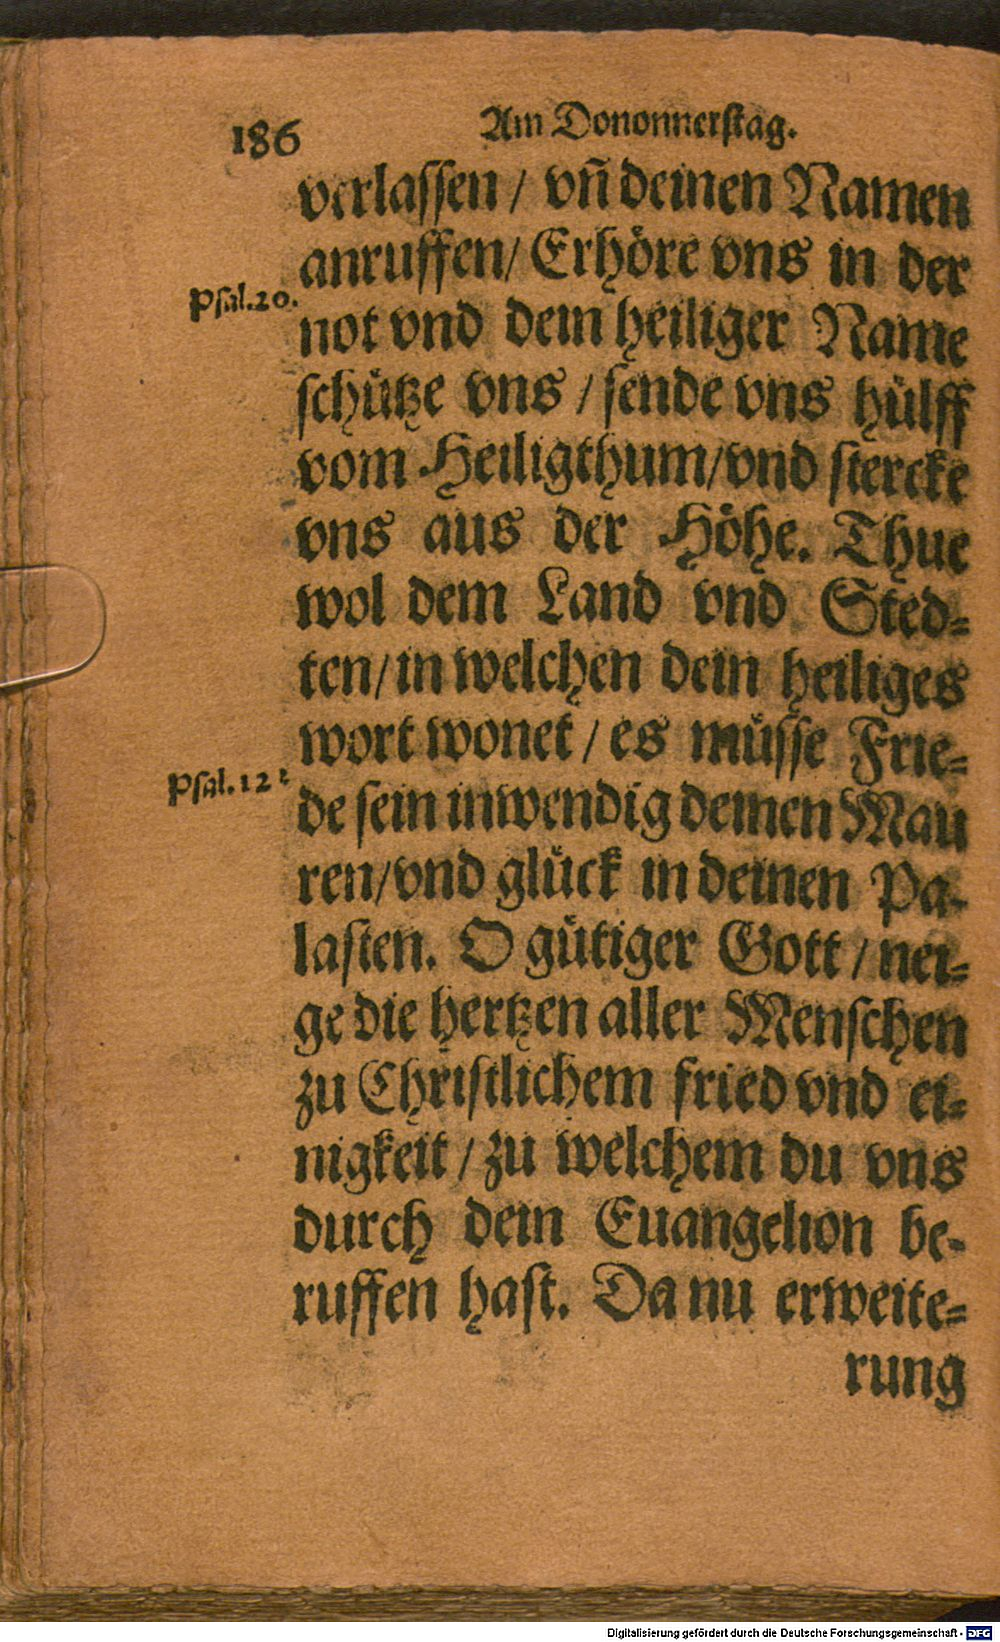 186 Am Dononnerstag.
verlassen / vñ deinen Namen
anruffen / Erhöre vns in der
Psal.20.
not vnd dein heiliger Name
schütze vns / sende vns hülff
vom Heiligthum / vnd stercke
vns aus der Höhe. Thue
wol dem Land vnd Sted⸗
ten / in welchen dein heiliges
wort wonet / es müsse Frie⸗
Psal.122
de sein inwendig deinen Mau
ren / vnd glück in deinen Pa⸗
lasten. O gütiger Gott / nei⸗
ge die hertzen aller Menschen
zu Christlichem fried vnd ei⸗
nigkeit / zu welchem du vns
durch dein Euangelion be⸗
ruffen hast. Da nu erweite⸗
rung
Digitalisierung gefördert durch die Deutsche Forschungsgemeinschaft - DFG